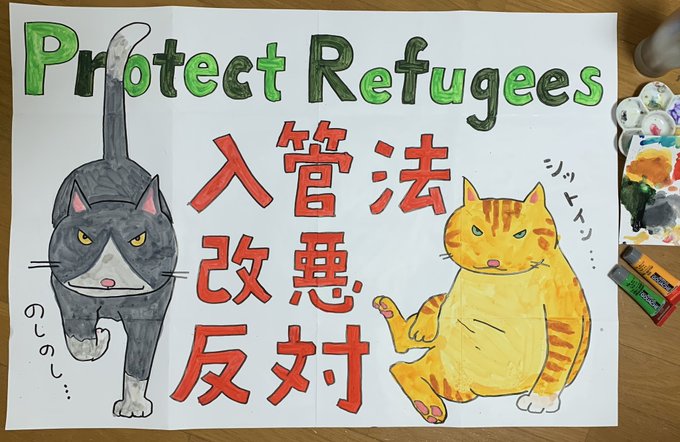 Protect Refugees
入管法
改悪
反対
シットイン…
のしのし…